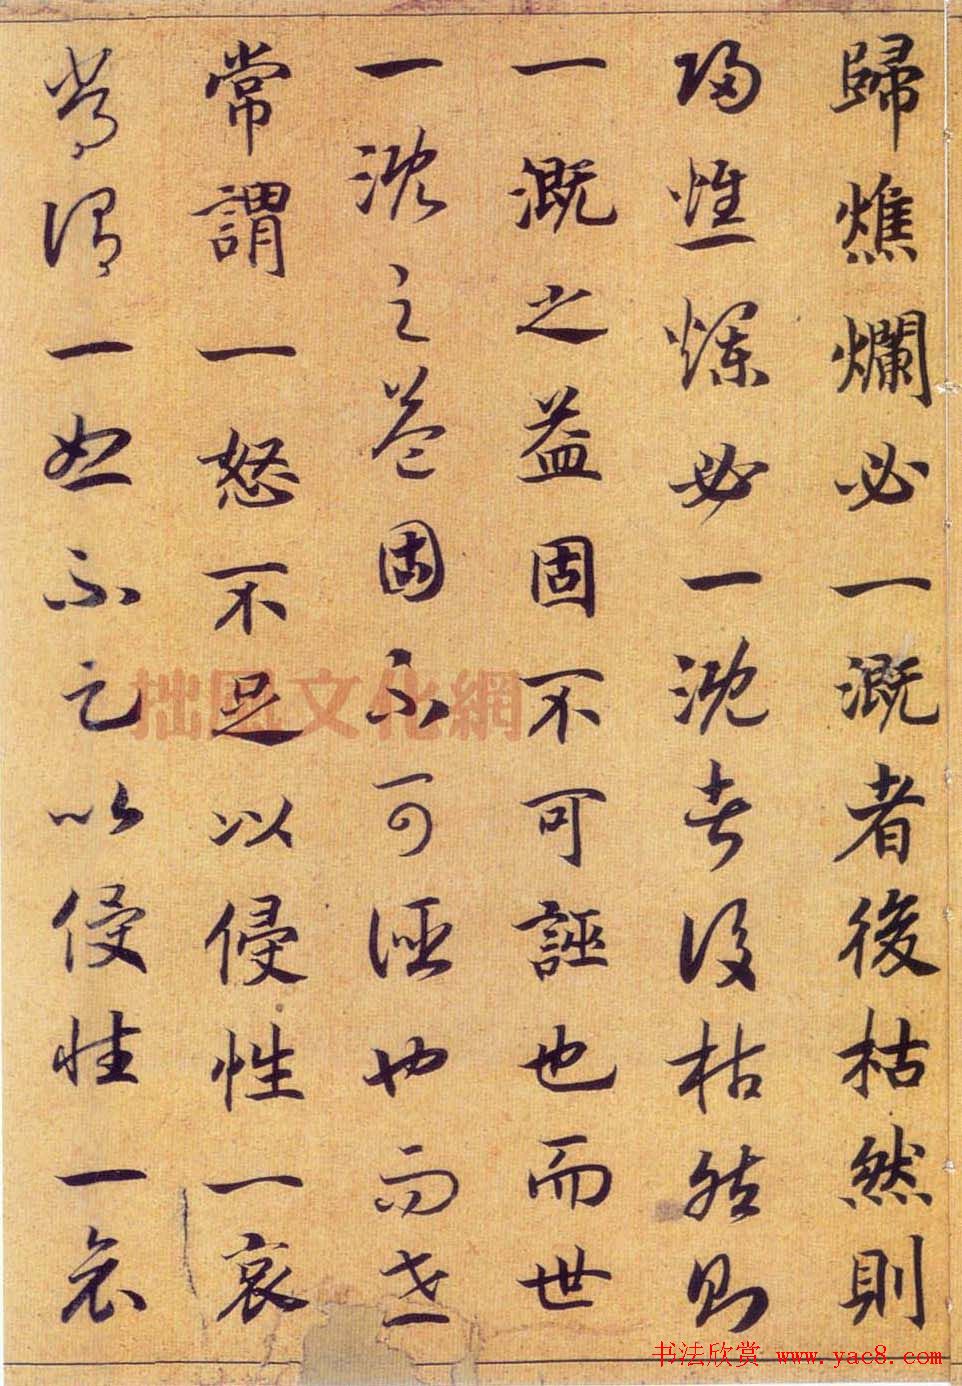 歸燋爛必一溉者後枯然則
歸燋爛必一溉者後枯然則
一溉之益固不可誣也而世
一溉之益固不可誣也而世
常謂一怒不足以侵性一哀
常謂一怒不足以侵性一哀
拙風文化網
书法欣赏 www.yac8.com